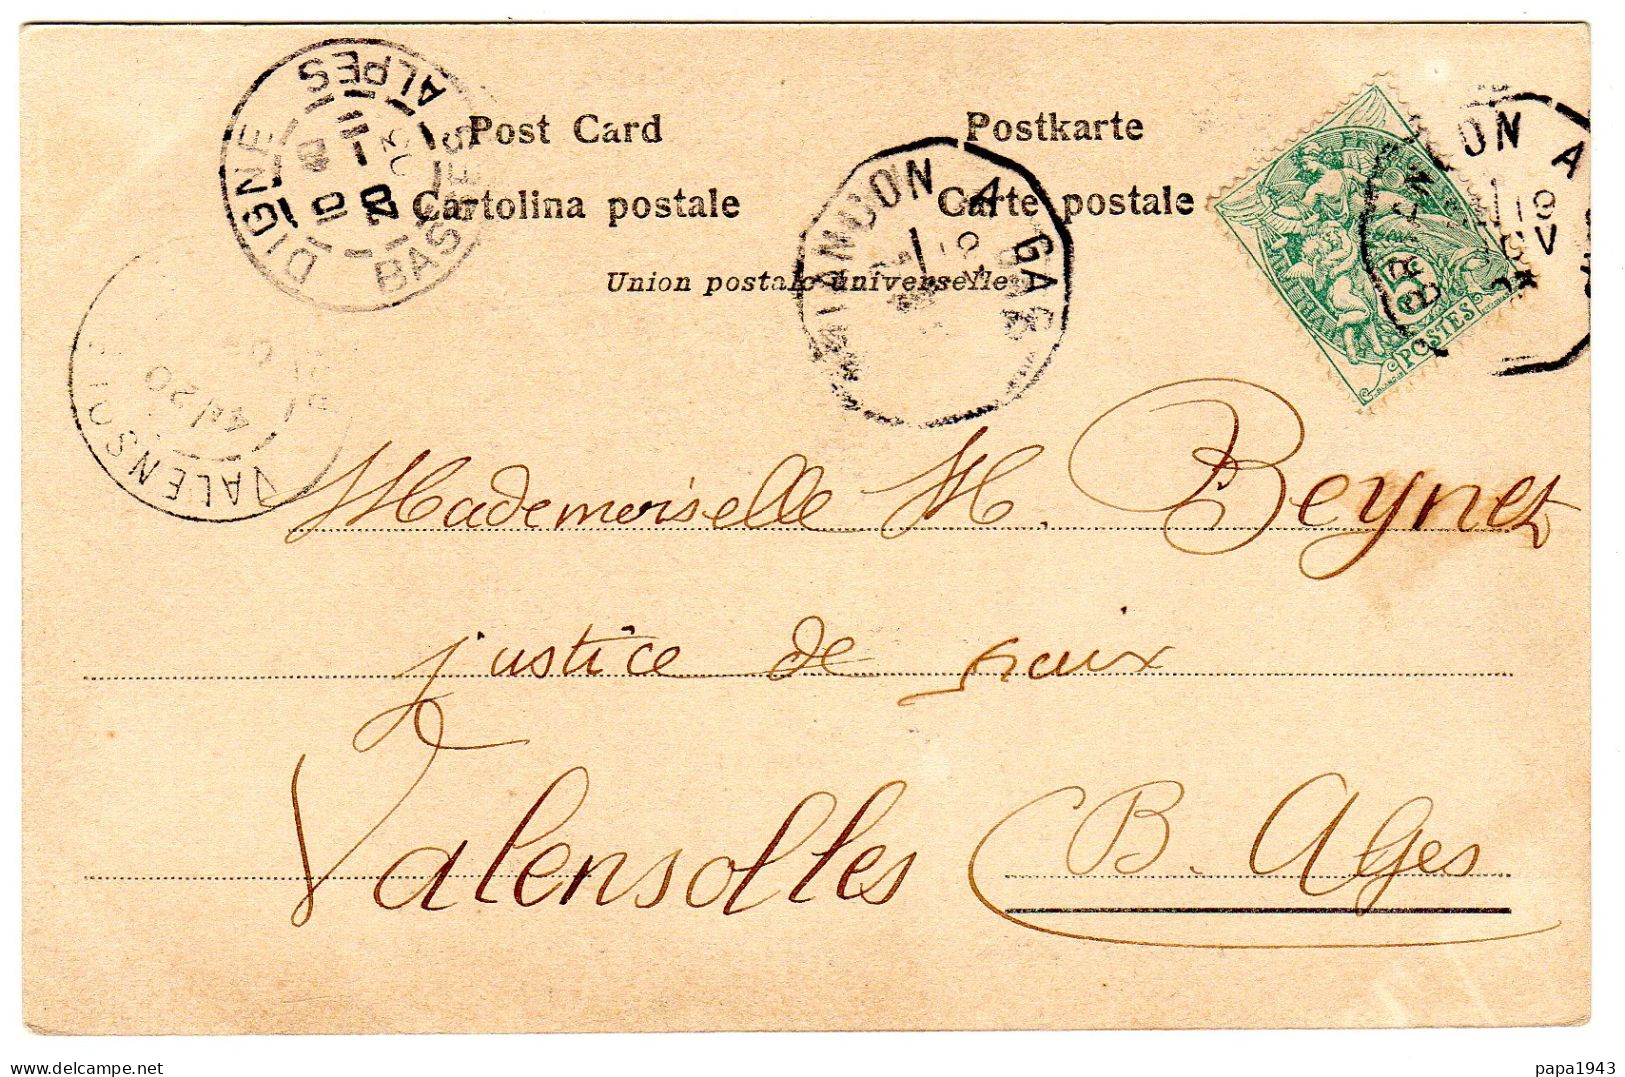 DIGNE
BASSES ALPES
Post Card
Postkarte
Cartolina postale
Carte postale
Union postale universelle
BRIANCON A GAP
BRIANCON A
5
POSTES
VALENSOLE
Mademoiselle M. Beynet
justice de paix
Valensolles B. Alpes
papa1943